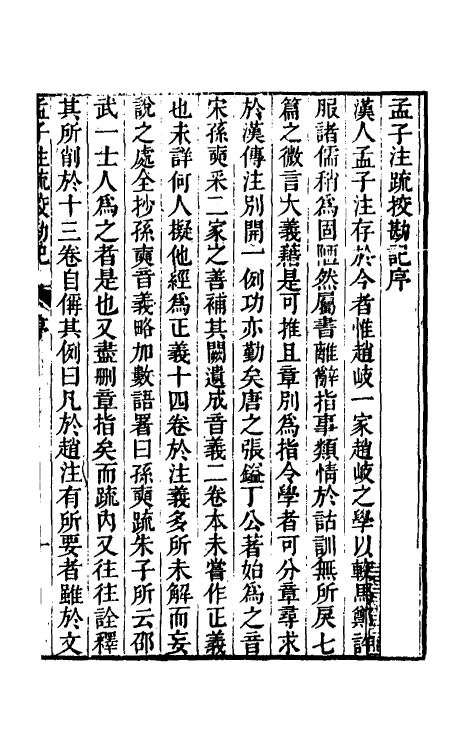 孟子注疏挍勘記序
漢人孟子注存於今者惟趙岐一家趙岐之學以較馬鄭許
服諸儒稍為固陋然屬書離辭指事類情於詁訓無所戾七
篇之微言大義藉是可推且章別為指令學者可分章尋求
於漢傳注別開一例功亦勤矣唐之張鎰丁公著始為之音
宋孫奭采二家之善補其闕遺成音義二卷本未嘗作正義
也未詳何人擬他經為正義十四卷於注義多所未解而妄
說之處全抄孫奭音義略加數語署曰孫奭疏朱子所云邵
武一士人為之者是也又盡刪章指矣而疏內又往往詮釋
其所削於十三卷自偁其例曰凡於趙注有所要者雖於文
孟子注疏挍勘記 序 一